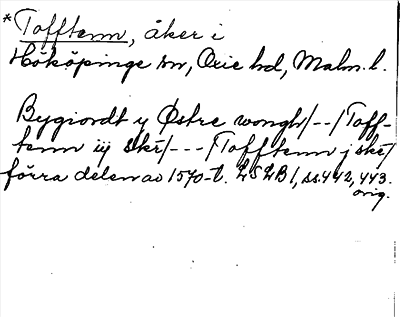 *Tofftenn, åker i
Hököpinge sn, Oxie hd, Malm. l.
Bygiordt y Østre wongh/--/Toff-
tenn iij skr/---/Tofftenn j skr/
förra delen av 1570-t. LSLB 1, ss. 442, 443.
orig.